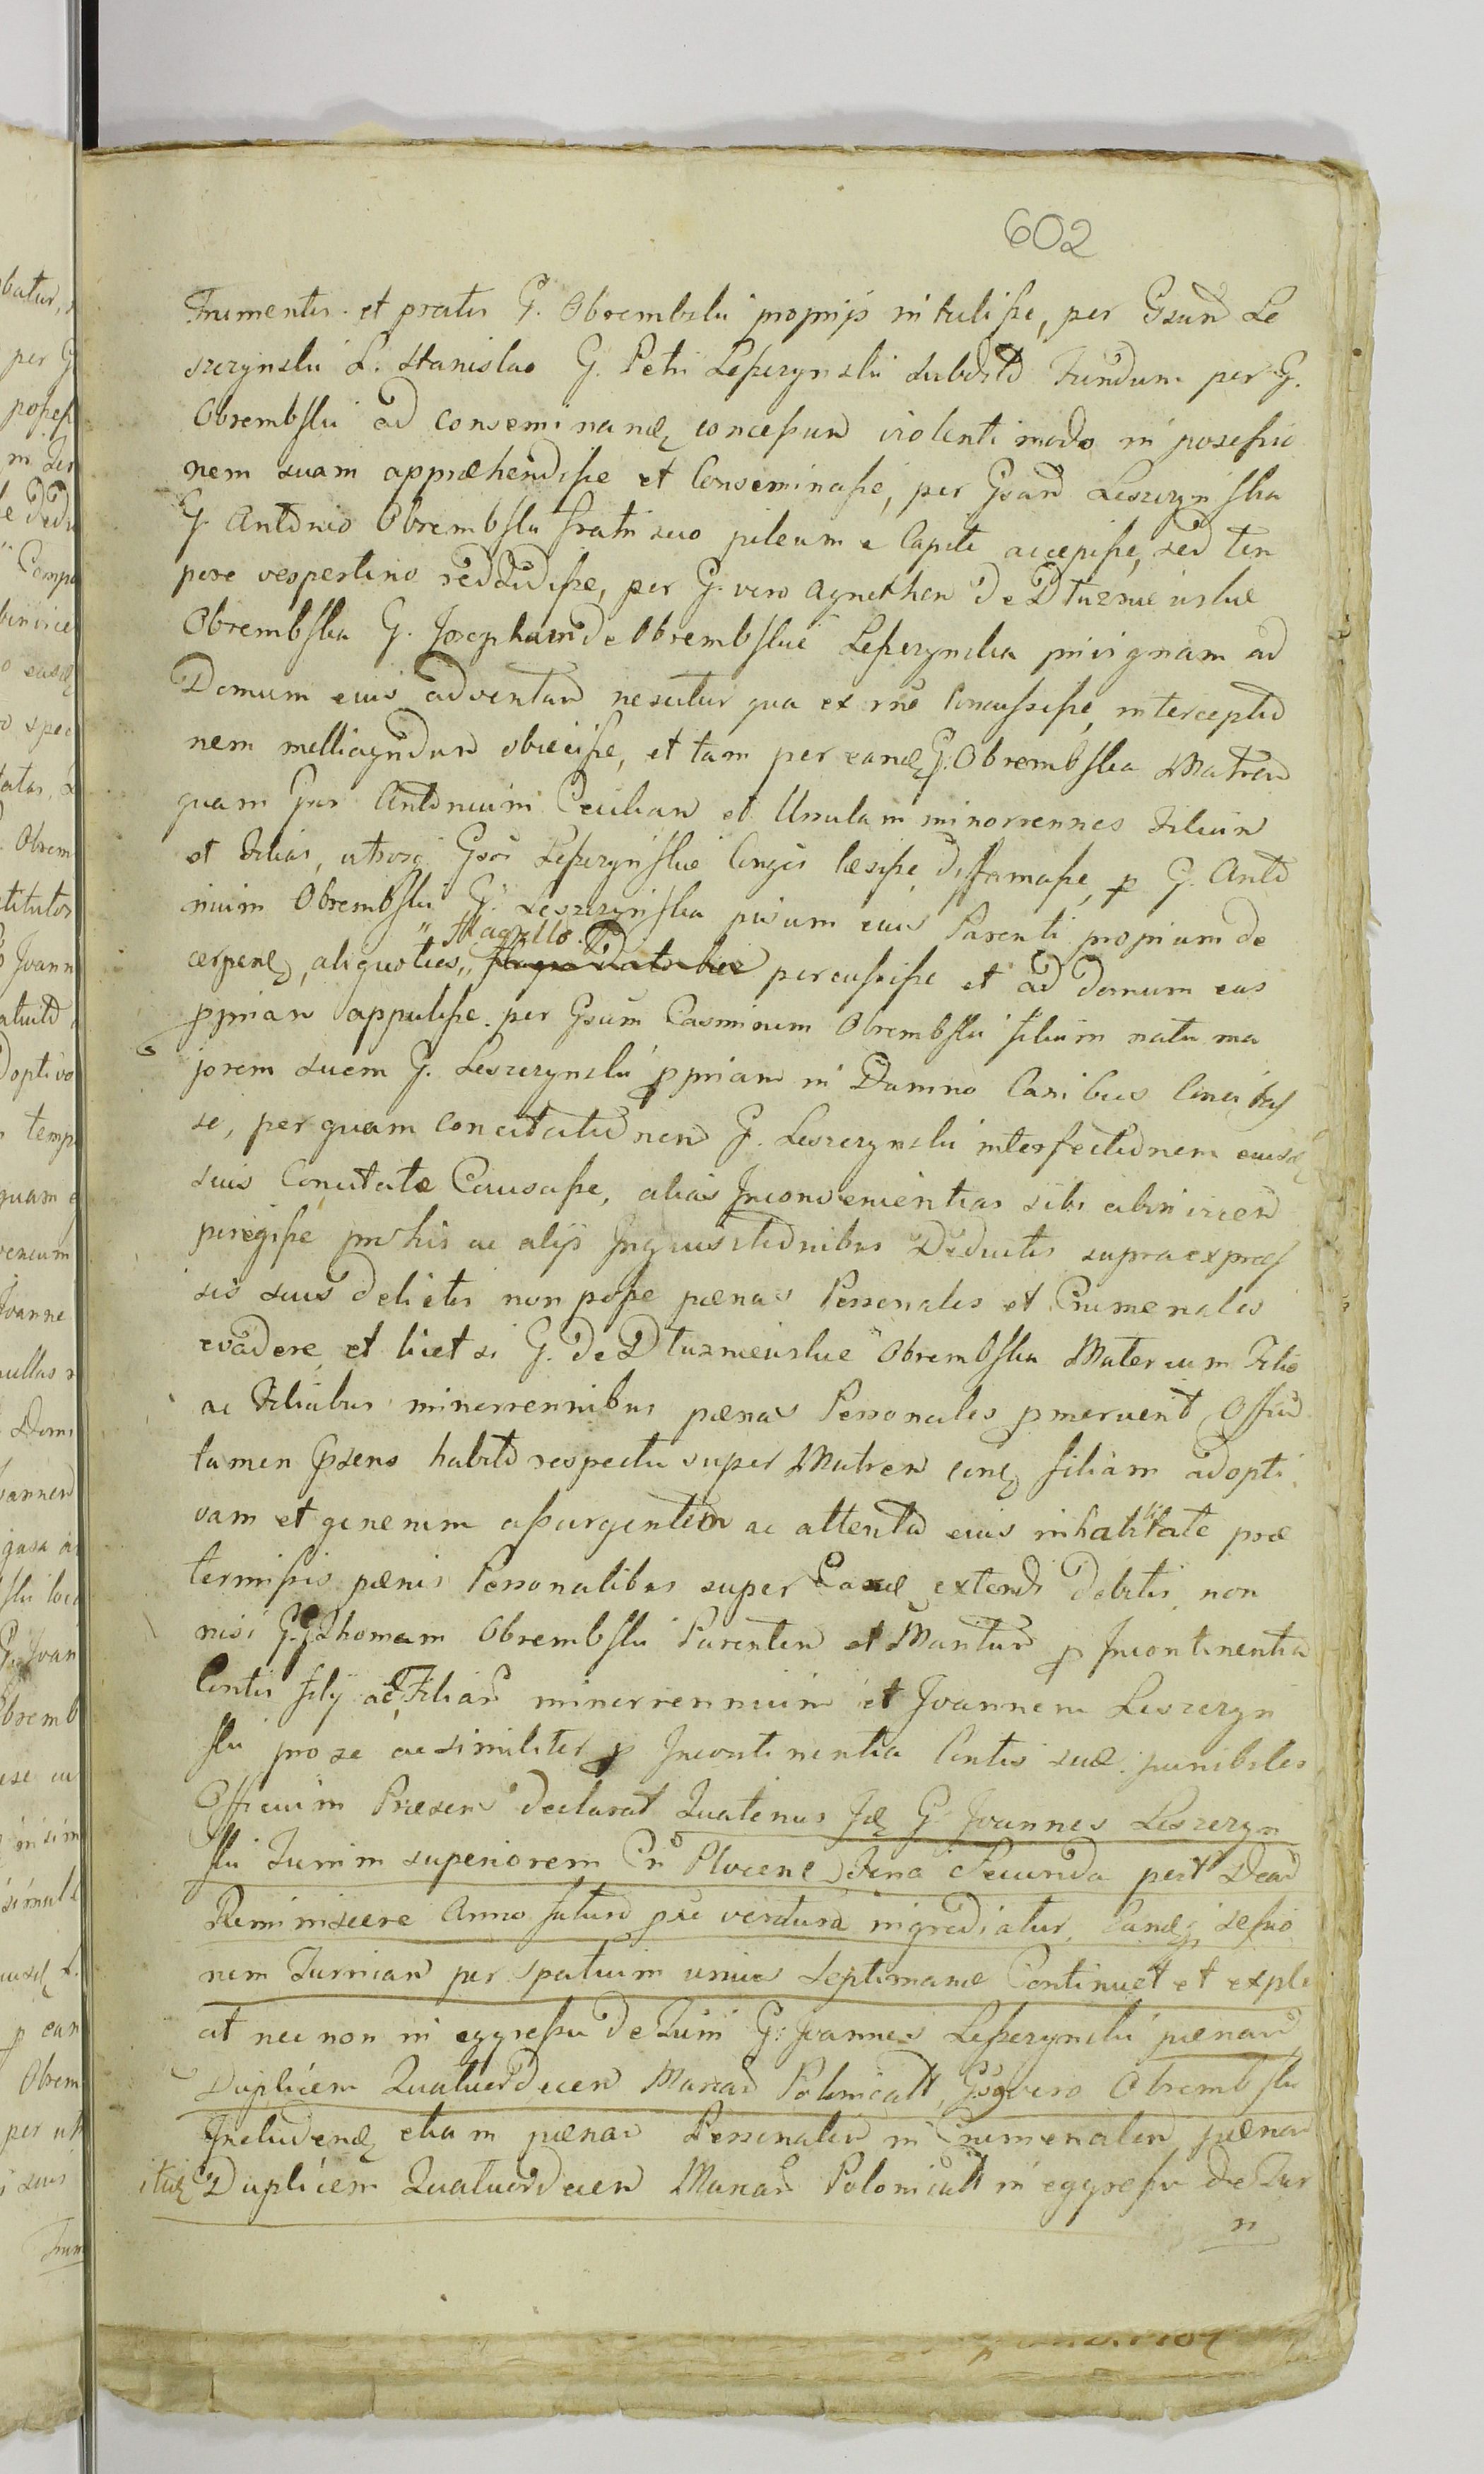 602
Frumentis et pratis G. Obrembski proprijs intulisse, per Gsum Le
szczynski L. Stanislao G. Petri Leszczynski subdito Fundum per G.
Obrembski ad conseminand concessum violenti modo in possessio
nem suam appræhendisse et Conseminasse, per Gsam Leszczynska
G. Antonio Obrembski fratri suo pileum e Capite accepisse, sed tem
pore vespertino reddidisse, per G. vero Agnethen De Dłuzniewskie
Obrembska G. Josepham de Obrembskie Leszczynska privignam ad
Domum eius adventan nescitur qua ex rne Concussisse, interceptio
nem obiecisse, et tam per eand G. Obrembska Matrem
quam Gnr Antonium Ceciliam et Ursulam minorrennes Filium
et Filias, utrosq Gsos Leszczynskie Conges læsisse, diffamasse, p G. Anto
nium Obrembski G. Leszczynska pisum eius Parenti proprium de
cerpend, aliquoties, flagello percussisse et ad domum eius
ppriam appulisse. per Gsum Casimirum Obrembski filium natu ma
jorem suem G. Leszczynski ppriam in Damno Canibus Concitas
se, per quam Concitationem G. Leszczynski interfectionem eiusd
suis Concitatæ Causasse, alias Inconvenientias sibi abinvicem
peregisse pro his ac alijs Inquisitionibus Deductis supraexpræs
sis suis delictis non posse pænas Personales et Criminales
evadere, et licet si G. De Dłuzniewskie Obrembska Mater cum Filio
ac Filiabus minorrennibus pænas Personales pmeruerit, Officiu
tamen Præsens habito respectu super Matrem cone filiam adopti
vam et generum assurgentem ac attenta eius inhabilitate præ
termissis pænis Personalibus super Easd extendi debitis, non
nisi G. G. Thomam Obrembski Parentem et Maritum p Incontinentia
Contis filij ac Filiar minorrennium et Joannem Leszczyn
ski pro se ac similiter p Incontinentia Contis suæ punibiles
Officium Præsens declarat Quatenus Id G. Joannes Leszczyn
ski Turrim superiorem Cri Plocene Feria Secunda post Deam
Reminiscere Anno futuro præ venturo ingrediatur, Eandq sessio
nem Turriam per spatium unius Septimanæ Continuet et exple
at nec non in eggressu de Turri G. Joannes Leszczynski pænam
Duplicem Quatuordecem Marcar Polonicalt, Gs vero Obrembski
Includend etiam pænam Personalem in Crimenalem pænam
itid Duplicem Quatuordecem Marcar Polonicalt in eggressu de Tur
ri